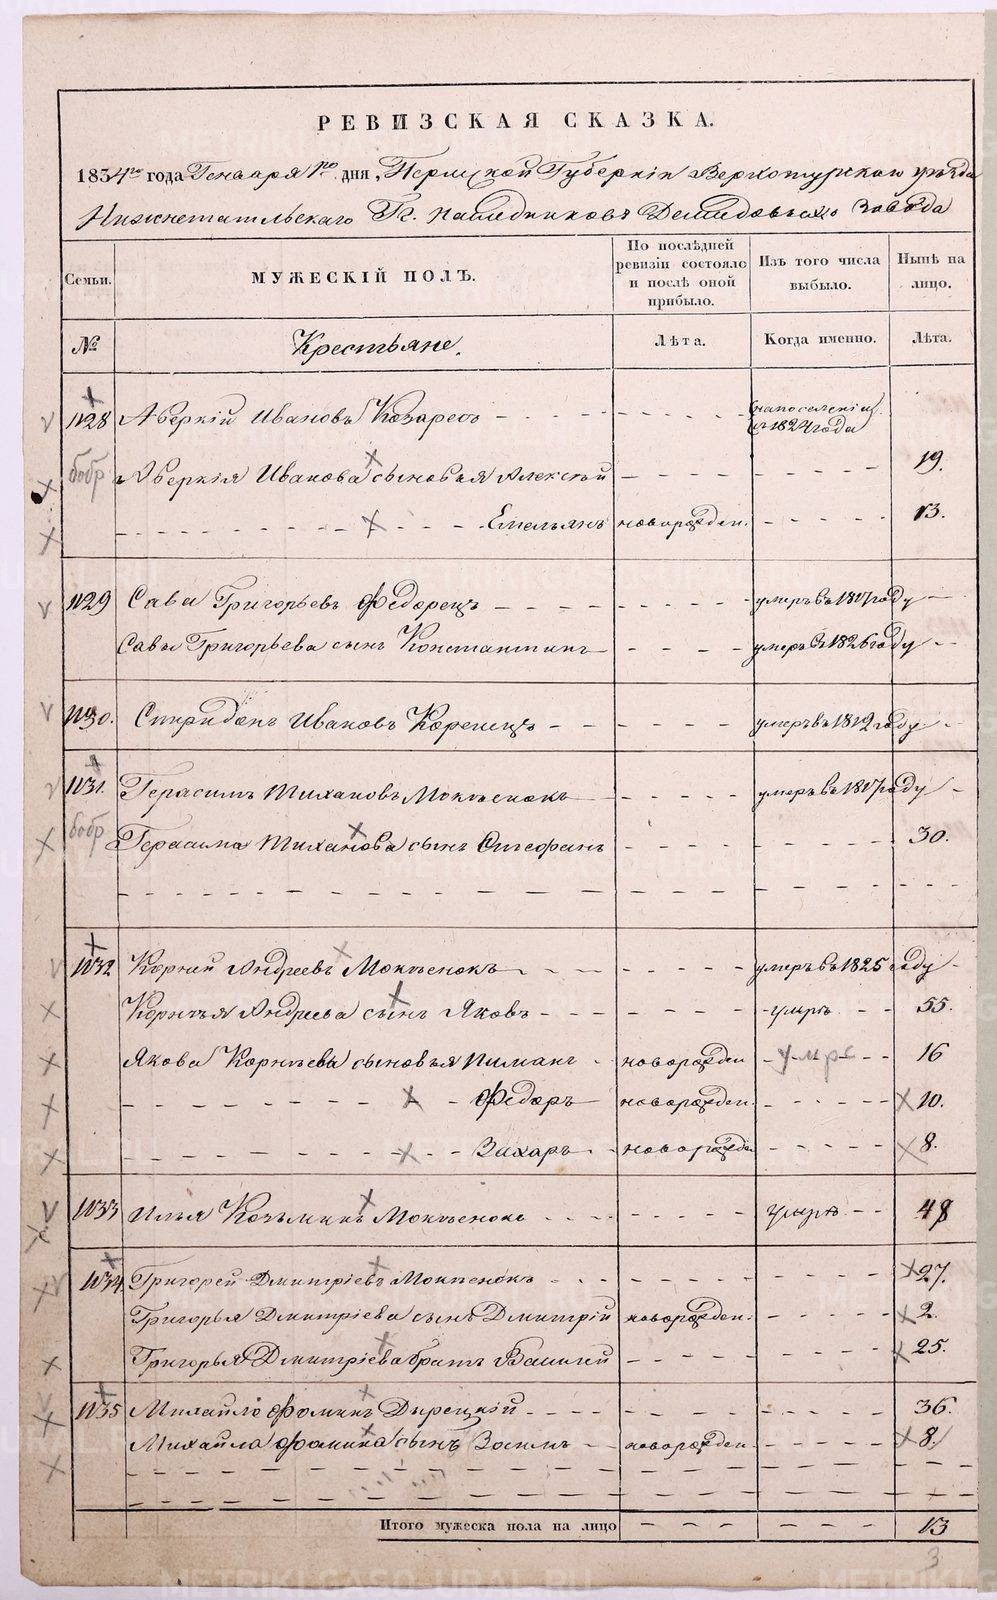 РЕВИЗСКАЯ СКАЗКА.
1834го года Генваря 1го дня, Пермской Губернiи Верхотурскаго уѣзда
Нижнетагильскаго Гг. наследниковъ Демидовыхъ завода
Семьи.
МУЖЕСКІЙ ПОЛЪ.
По послѣдней ревизіи состояло и послѣ оной прибыло.
Изъ того числа выбыло.
Нынѣ на лицо.
№
Крестьяне.
Лѣта.
Когда именно.
Лѣта.
1128 Аверкiй Ивановъ на поселенiи съ 1824 года
бобр Аверкiя Иванова сыновья Алексѣй 19.
Емельянъ новорожден. 13.
1129 Сава Григорьевъ Федорецъ умеръ въ году
Савы Григорьева сынъ Константинъ умеръ въ 1826 году
1130. Спиридонъ Ивановъ умеръ въ 1819 году
1131. Герасимъ Тихановъ Мокѣенокъ умеръ въ году
бобр Герасима Тиханова сынъ Стефанъ 30.
1132 Корний Андреевъ Мокѣенокъ умеръ въ 1825 году
Корнѣя Андреева сынъ Яковъ умре 55.
Якова Корнѣева сыновья Пиманъ новорожден умре 16
Федоръ новорожден. 10.
Захаръ новорожде 8.
1133 Илья Козьминъ Мокѣенокъ умре 48
1134 Григорей Дмитрiевъ Мокѣенокъ 27.
Григорья Дмитрiева сынъ Дмитрiй новорожден. 2.
Григорья Дмитрiева братъ Василий 25.
1135 Михайло Фоминъ Дирецкiй 36.
Михайла Фомина сынъ Зосимъ новорожден. 8.
Итого мужеска пола на лицо 13
3
METRIKI.GASO-URAL.RU